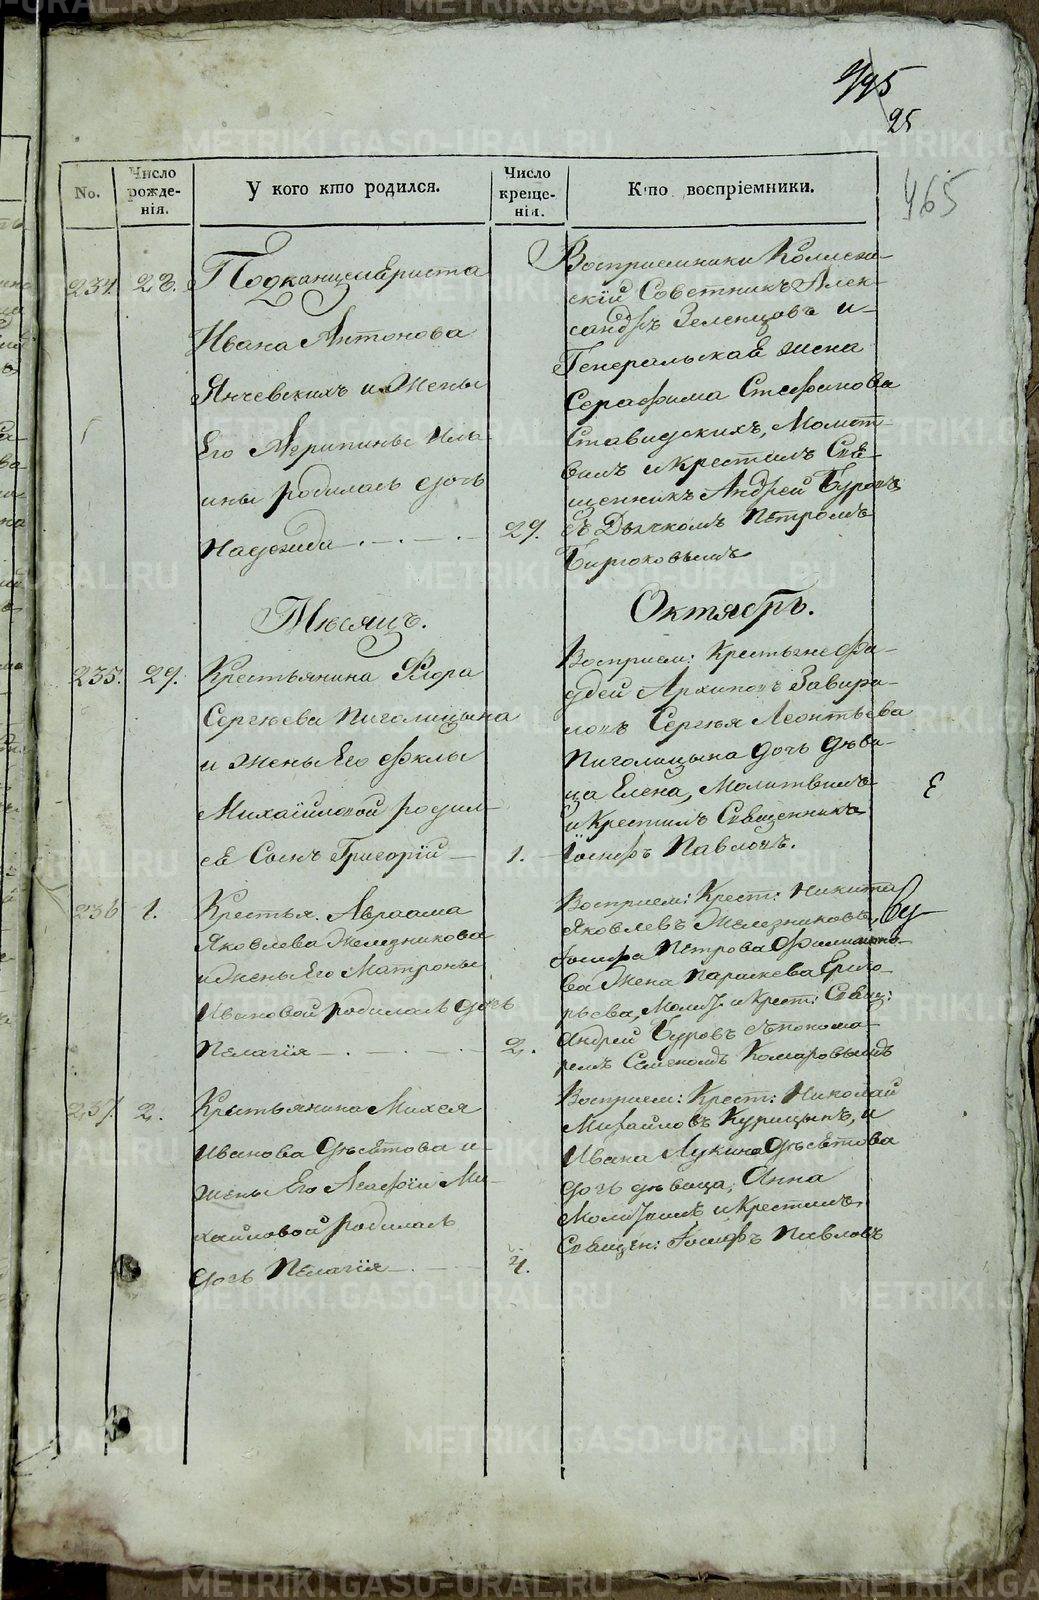 495
25
465
No.
Число рожде-нія.
У кого кто родился.
Число креще-нія.
Кто воспріемники.
234. 23. Подканцеляриста
Ивана Антонова
Янчевскихъ и Жены
Его Агрипины Ильи-
ины родилась дочь
Надежда 29.
Восприемники Коллеж-
скій Советникъ Алек-
сандръ Зеленцовъ и
Генеральская жена
Серафима Стефанова
Ставидскихъ, Молит-
вилъ и Крестилъ Свя-
щенникъ Андрей Буровъ
съ Дьячкомъ Петромъ
Бирюковымъ
Мѣсяцъ. Октябрь.
235. 29. Крестьянина Флора
Сергѣева Пиголицына
и Жены Его Феклы
Михайловой родил-
ся Сынъ Григорій 1.
Восприем: Крестьяне Фа-
дей Архиповъ Завира-
ловъ Сергѣя Леонтьева
Пиголицына дочь дѣви-
ца Елена, Молитвилъ
и Крестилъ Священникъ
Іосифъ Павловъ.
236 1. Крестья. Авраама
Яковлева Железникова
и Жены Его Матроны
Ивановой родилась дочь
Пелагія 2.
Восприем: Крест: Никита
Яковлевъ Железниковъ,
Іосифа Петрова Филимоно-
ва Жена Параскева Григо-
рьева, Молит. и Крест: Свящ:
Андрей Буровъ съ понома-
ремъ Семеномъ Комаровымъ
237. 2. Крестьянина Михея
Иванова Дѣсятова и
жены Его Агафіи Ми-
хайловой родилась
дочь Пелагія 4.
Восприем: Крест: Николай
Михайловъ Курицынъ, и
Ивана Лукина Дѣсятова
дочь дѣвица, Анна
Молитвилъ и Крестилъ
Священ: Іосифъ Павловъ
METRIKI.GASO-URAL.RU